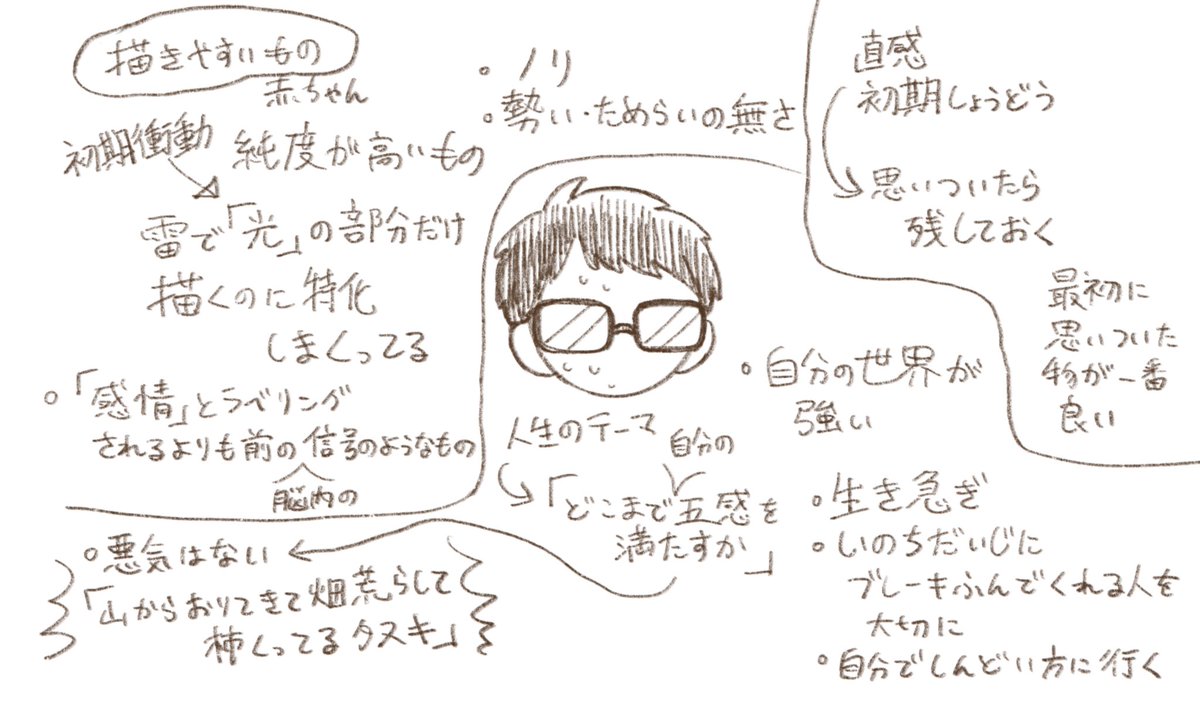 描きやすいもの
赤ちゃん
初期衝動
純度が高いもの
雷で「光」の部分だけ
描くのに特化
しまくってる
「感情」とラベリング
されるよりも前の信号のようなもの
脳内の
・ノリ
・勢い・ためらいの無さ
直感
初期しょうどう
思いついたら
残しておく
最初に
思いついた
物が一番
良い
人生のテーマ
自分の
「どこまで五感を
満たすか」
・自分の世界が
強い
・生き急ぎ
・いのちだいじに
ブレーキふんでくれる人を
大切に
・自分でしんどい方に行く
・悪気はない
「山からおりてきて畑荒らして
柿くってるタヌキ」